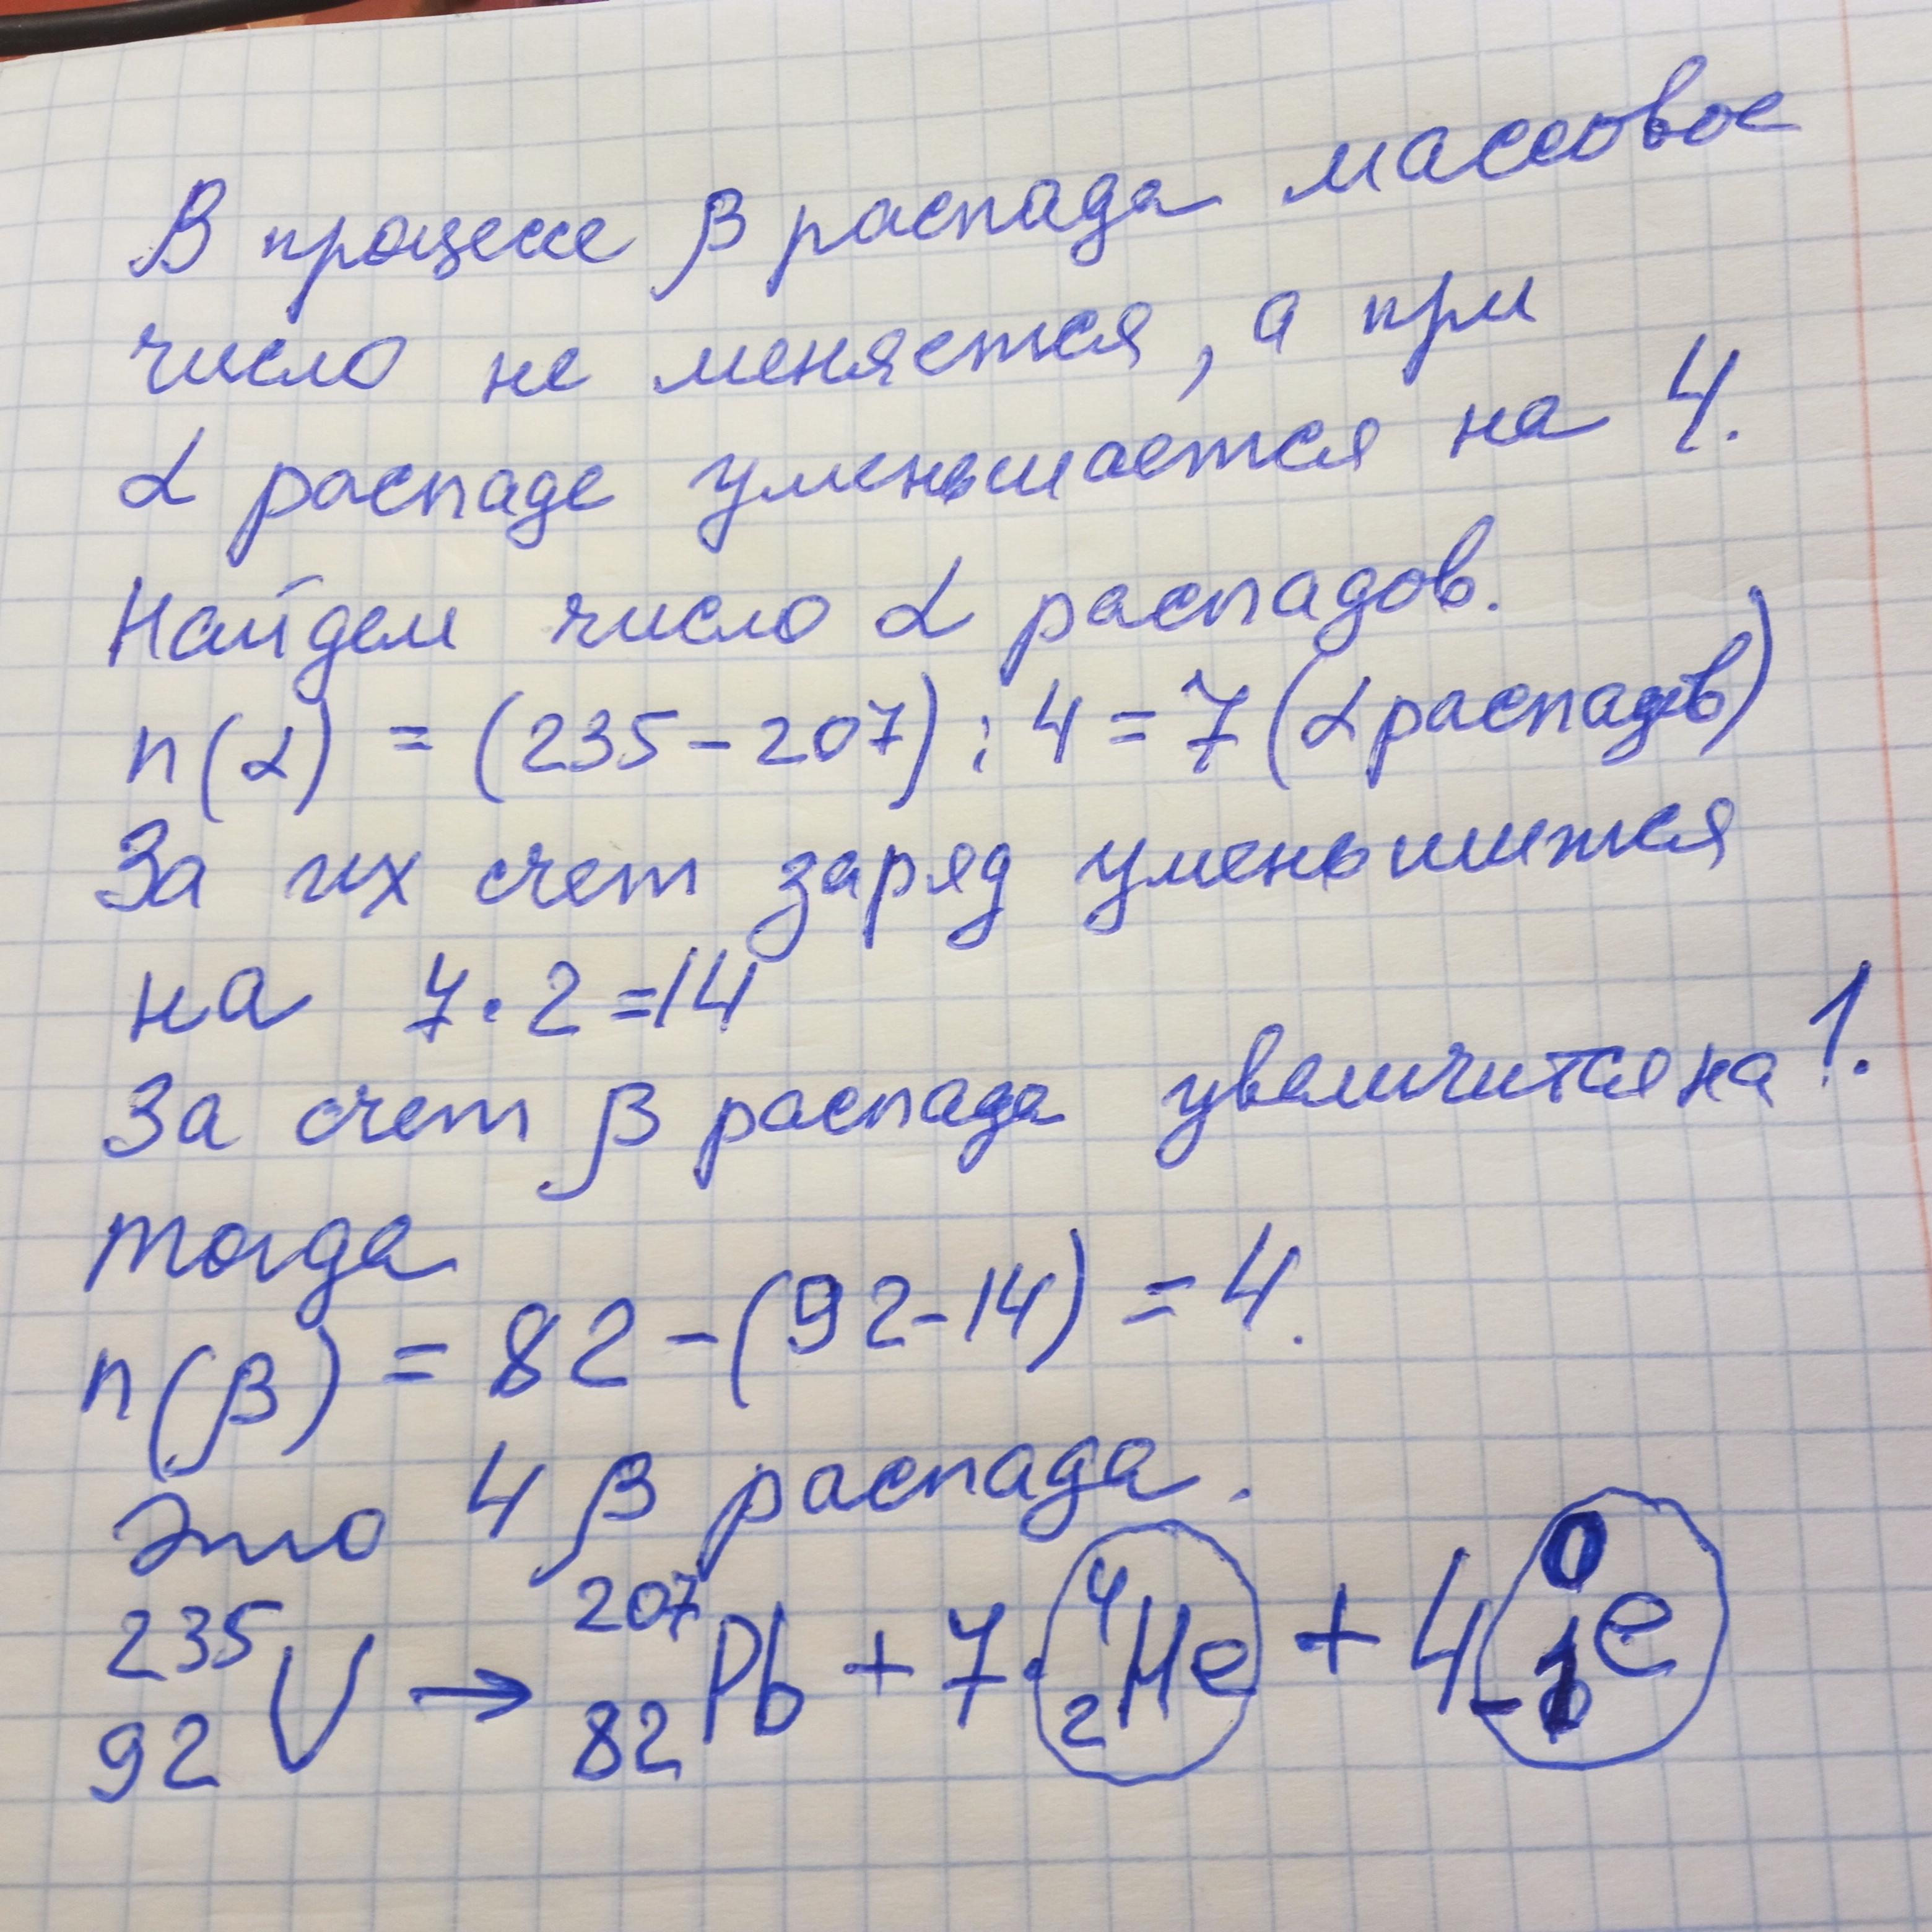 В процессе β распада массовое
число не меняется, а при
α распаде уменьшается на 4.
Найдем число α распадов.
n(α) = (235-207):4=7(α распадов)
За их счет заряд уменьшится
на 7·2=14
За счет β распада увеличится на 1.
тогда
n(β) = 82-(92-14) = 4.
Это 4 β распада.
²³⁵₉₂U → ²⁰⁷₈₂Pb + 7·⁴₂He + 4 ⁰₋₁e